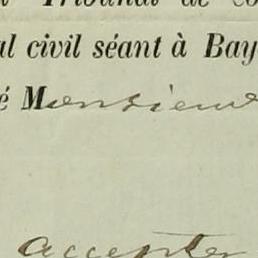 Tribunal de
al civil séant à Bay
é Monsieur
accepter